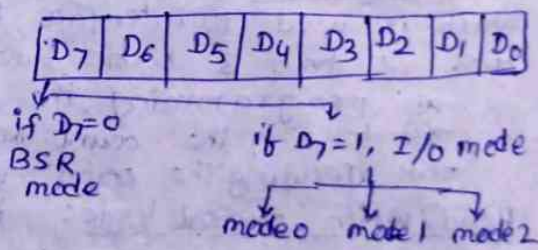 D7 D6 D5 D4 D3 D2 D1 D0
if D7=0
BSR
mode
if D7=1, I/O mode
mode 0 mode 1 mode 2